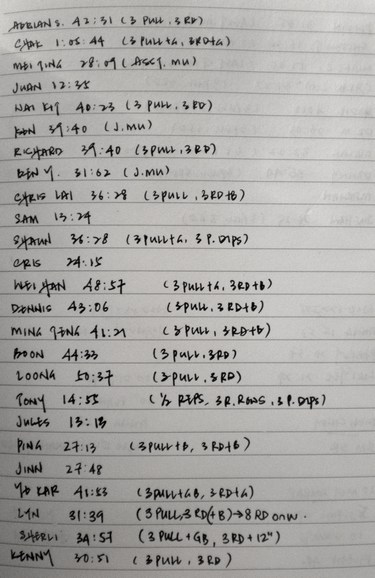 ADRIAN S. 42:31 (3 PULL, 3RD)
CHAK 1:05:44 (3 PULL+G, 3RD+G)
MEI TING 28:09 (ASST. MU)
JUAN 12:35
WAI KIT 40:23 (3 PULL, 3RD)
KEN 39:40 (J.MU)
RICHARD 39:40 (3PULL, 3RD)
BEN Y. 31:62 (J.MU)
CHRIS LAI 36:28 (3PULL, 3RD+B)
SAM 13:29
SHAUN 36:28 (3PULL+G, 3 P. DIPS)
CRIS 24:15
WEI HAN 48:57 (3 PULL+G, 3RD+B)
DENNIS 43:06 (3 PULL, 3 RD+B)
MING 41:21 (3 PULL, 3RD+B)
BOON 44:33 (3 PULL, 3RD)
LOONG 50:37 (3 PULL, 3 RD)
TONY 14:55 (1/2 REPS, 3 R. ROWS, 3 P. DIPS)
JULES 13:13
PING 27:13 (3 PULL+B, 3 RD+B)
JINN 27:48
KAR 41:53 (3PULL+GB, 3RD+G)
LYN 31:39 (3 PULL, 3 RD(+B)→8 RD ONW.
SHERLI 34:57 (3 PULL+GB, 3RD+12")
KENNY 30:51 (3 PULL, 3 RD)